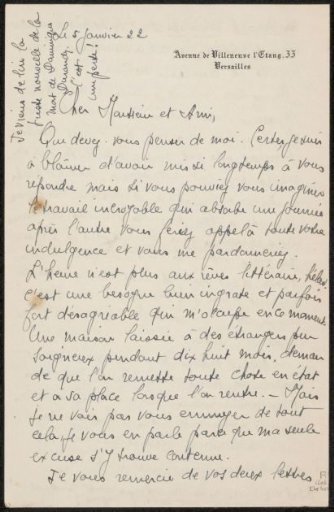 le 5 Janvier 22
Avenue de Villeneuve l'Etang. 33
Versailles
Je viens de lire la
triste nouvelle de la
mort de Dominique
Durandy. C'est
une perte!
Cher Monsieur et Ami,
Que devez-vous penser de moi. Certes je suis
à blâmer d'avoir mis si longtemps à vous
répondre mais si vous pouvez vous imaginer
le travail incroyable qui absorbe une journée
après l'autre vous feriez appel à toute votre
indulgence et vous me pardonnerez.
L'heure n'est plus aux rêves littéraires, hélas
c'est une besogne bien ingrate et parfois
fort désagréable qui m'occupe en ce moment.
Une maison laissée à des étrangers peu
soigneux pendant dix huit mois, deman
de que l'on remette toute chose en état
et à sa place lorsque l'on rentre. — Mais
je ne vais pas vous ennuyer de tout
cela, je vous en parle parce que ma seule
excuse s'y trouve contenue.
Je vous remercie de vos deux lettres